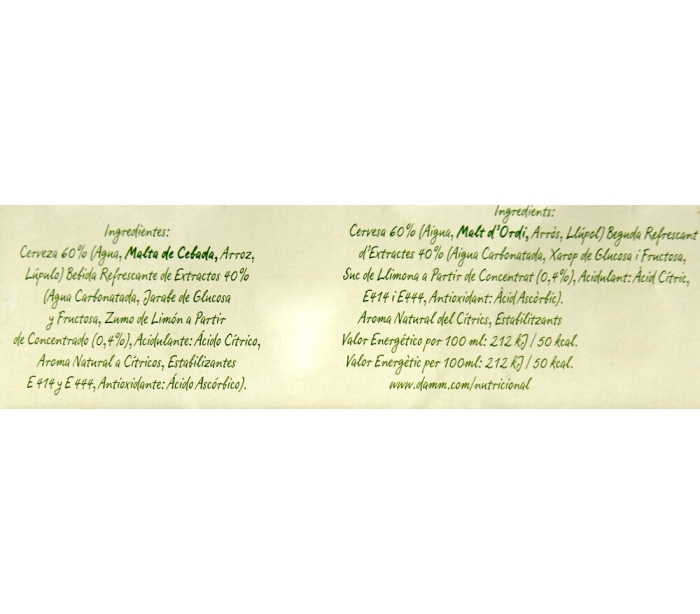 Ingredientes:
Cerveza 60% (Agua, Malta de Cebada, Arroz,
Lúpulo) Bebida Refrescante de Extractos 40%
(Agua Carbonatada, Jarabe de Glucosa
y Fructosa, Zumo de Limón a Partir
de Concentrado (0,4%), Acidulante: Ácido Cítrico,
Aroma Natural a Cítricos, Estabilizantes
E 414 y E 444, Antioxidante: Ácido Ascórbico).
Ingredients:
Cervesa 60% (Aigua, Malt d'Ordi, Arròs, Llúpol) Beguda Refrescant
d'Extractes 40% (Aigua Carbonatada, Xarop de Glucosa i Fructosa,
Suc de Llimona a Partir de Concentrat (0,4%), Acidulant: Àcid Cítric,
E414 i E444, Antioxidant: Àcid Ascòrbic).
Aroma Natural del Cítrics, Estabilitzants
Valor Energético por 100 ml: 212 kJ / 50 kcal.
Valor Energètic per 100ml: 212 kJ / 50 kcal.
www.damm.com/nutricional